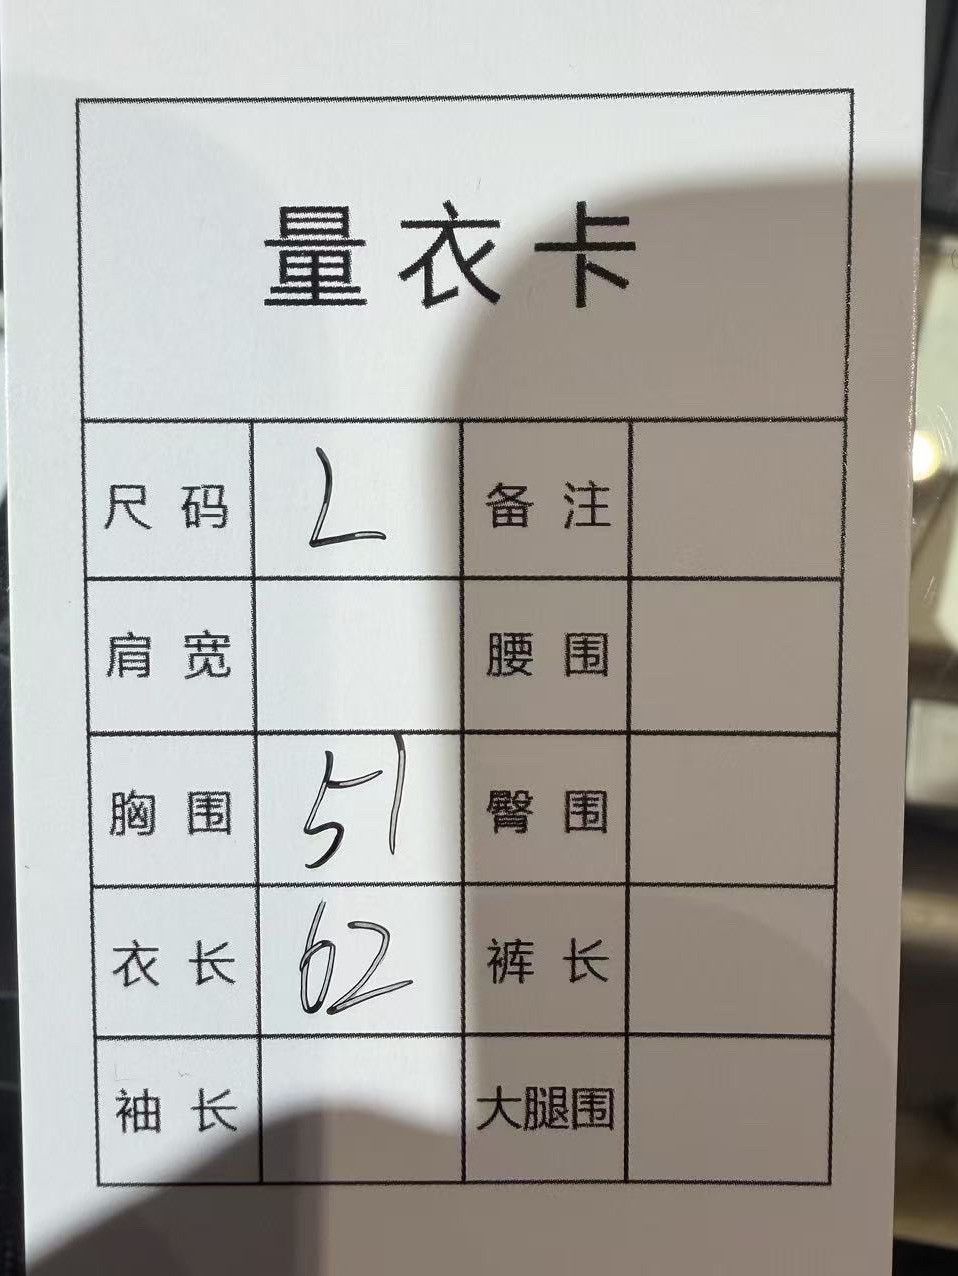 量衣卡
尺码 L 备注
肩宽 腰围
胸围 51 臀围
衣长 62 裤长
袖长 大腿围